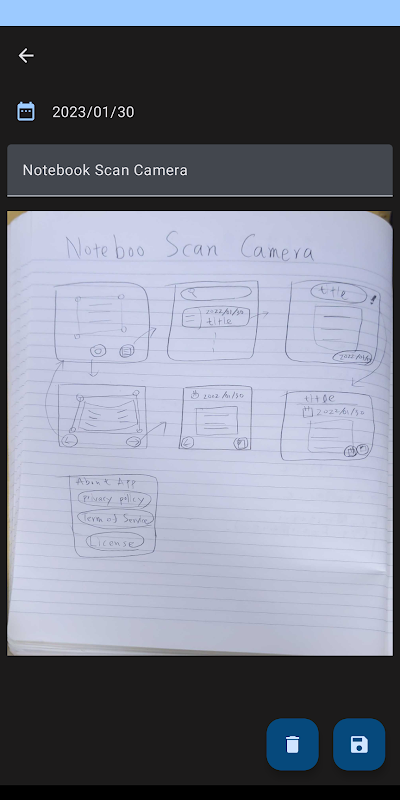 2023/01/30
Notebook Scan Camera
Noteboo Scan Camera
2022/01/30
title
title
2022/01/30
2022/01/30
title
2022/01/30
About App
privacy policy
Term of Service
License